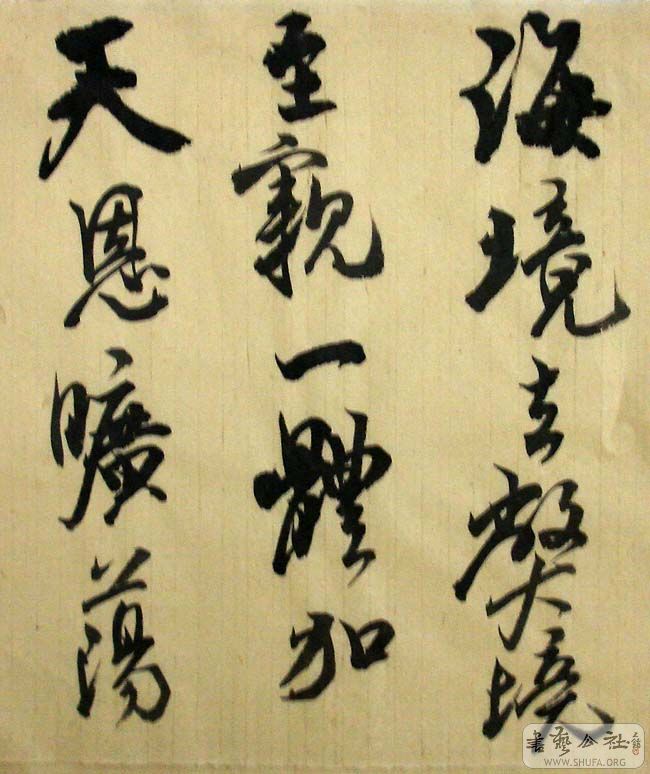 海境去
至親一體加
天恩曠蕩
書藝公社
WWW.SHUFA.ORG